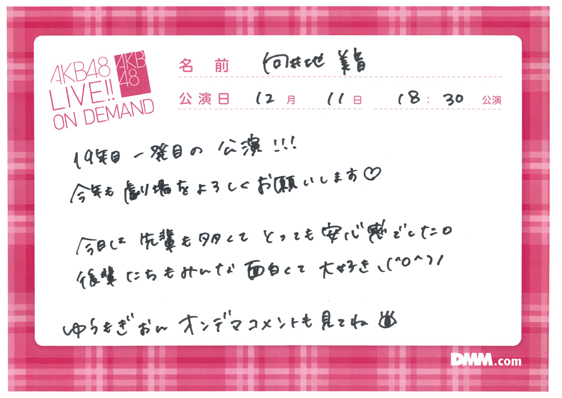 AKB48
LIVE!!
ON DEMAND
AKB
48
名前 向井地 美音
公演日 12月 11日 18:30 公演
19年目 一発目の 公演!!!
今年も劇場をよろしくお願いします♡
今日は 先輩も多くて とっても安心感でした。
後輩たちもみんな 面白くて 大好き ヽ(^o^)ノ
ゆうもぎおん オンデマコメントも見てね
DMM.com